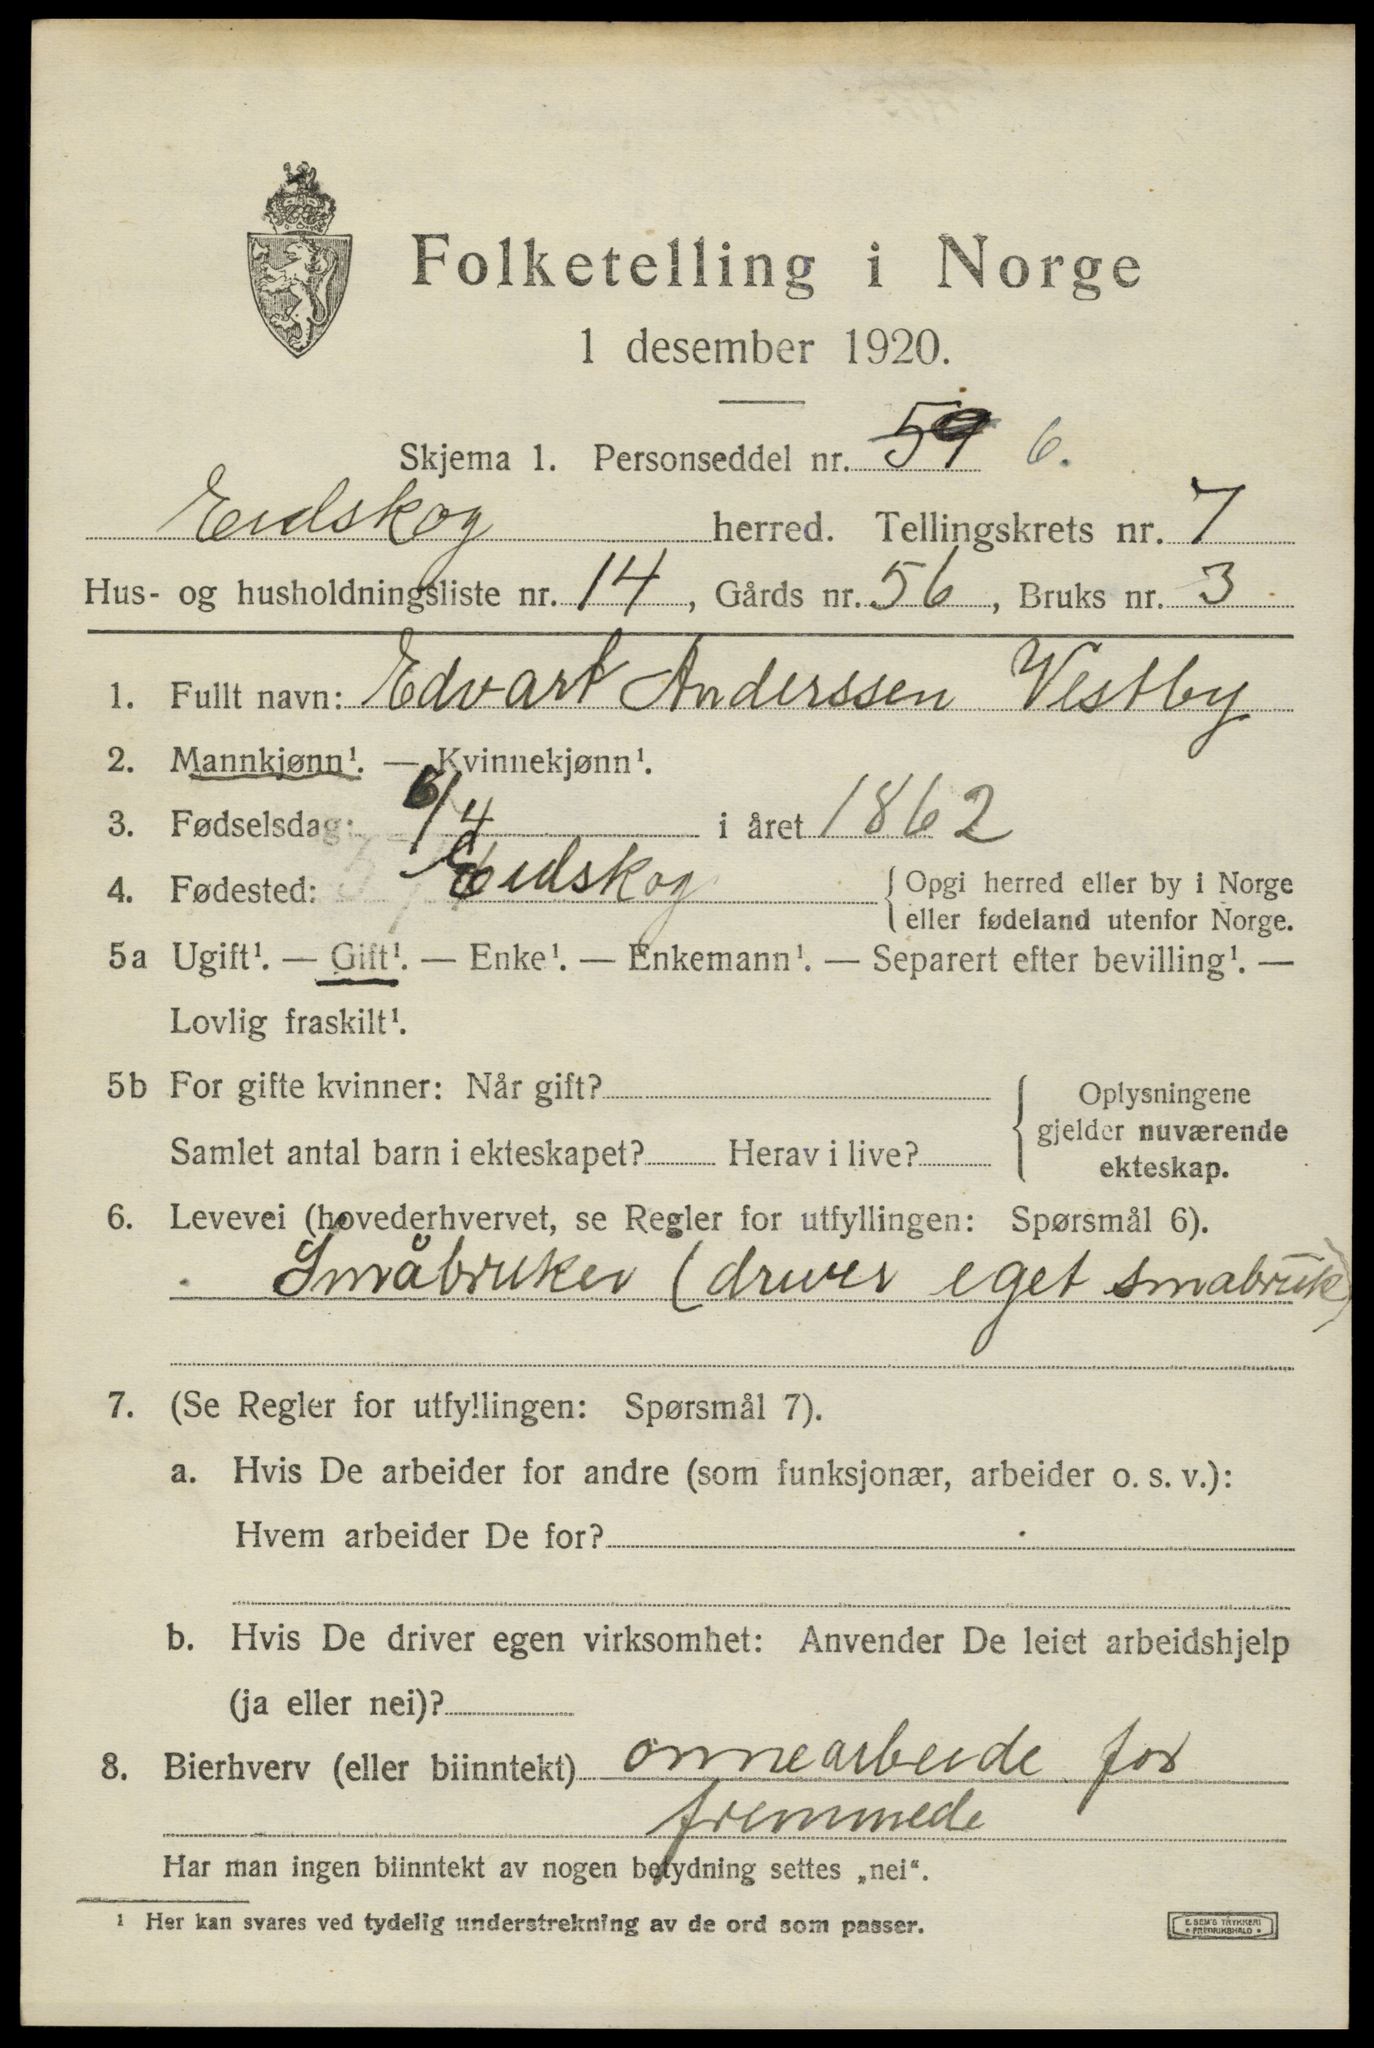 Folketelling i Norge
1 desember 1920.
Skjema 1. Personseddel nr. 59 6.
Eidskog herred. Tellingskrets nr. 7
Hus- og husholdningsliste nr. 14, Gårds nr. 56, Bruks nr. 3
1. Fullt navn: Edvart Anderssen Vestby
2. Mannkjønn¹. — Kvinnekjønn¹.
3. Fødselsdag: 6/4 i året 1862
4. Fødested: Eidskog {Opgi herred eller by i Norge
eller fødeland utenfor Norge.
5a Ugift¹. — Gift¹. — Enke¹. — Enkemann¹. — Separert efter bevilling¹. —
Lovlig fraskilt¹.
5b For gifte kvinner: Når gift? Oplysningene
gjelder nuværende
Samlet antal barn i ekteskapet? Herav i live? ekteskap.
6. Levevei (hovederhvervet, se Regler for utfyllingen: Spørsmål 6).
Småbruker (driver eget småbruk)
7. (Se Regler for utfyllingen: Spørsmål 7).
a. Hvis De arbeider for andre (som funksjonær, arbeider o. s. v.):
Hvem arbeider De for?
b. Hvis De driver egen virksomhet: Anvender De leiet arbeidshjelp
(ja eller nei)?
8. Bierhverv (eller biinntekt) onnearbeide for
fremmede
Har man ingen biinntekt av nogen betydning settes „nei“.
¹ Her kan svares ved tydelig understrekning av de ord som passer.
E. SEM'S TRYKKERI
FREDRIKSHALD